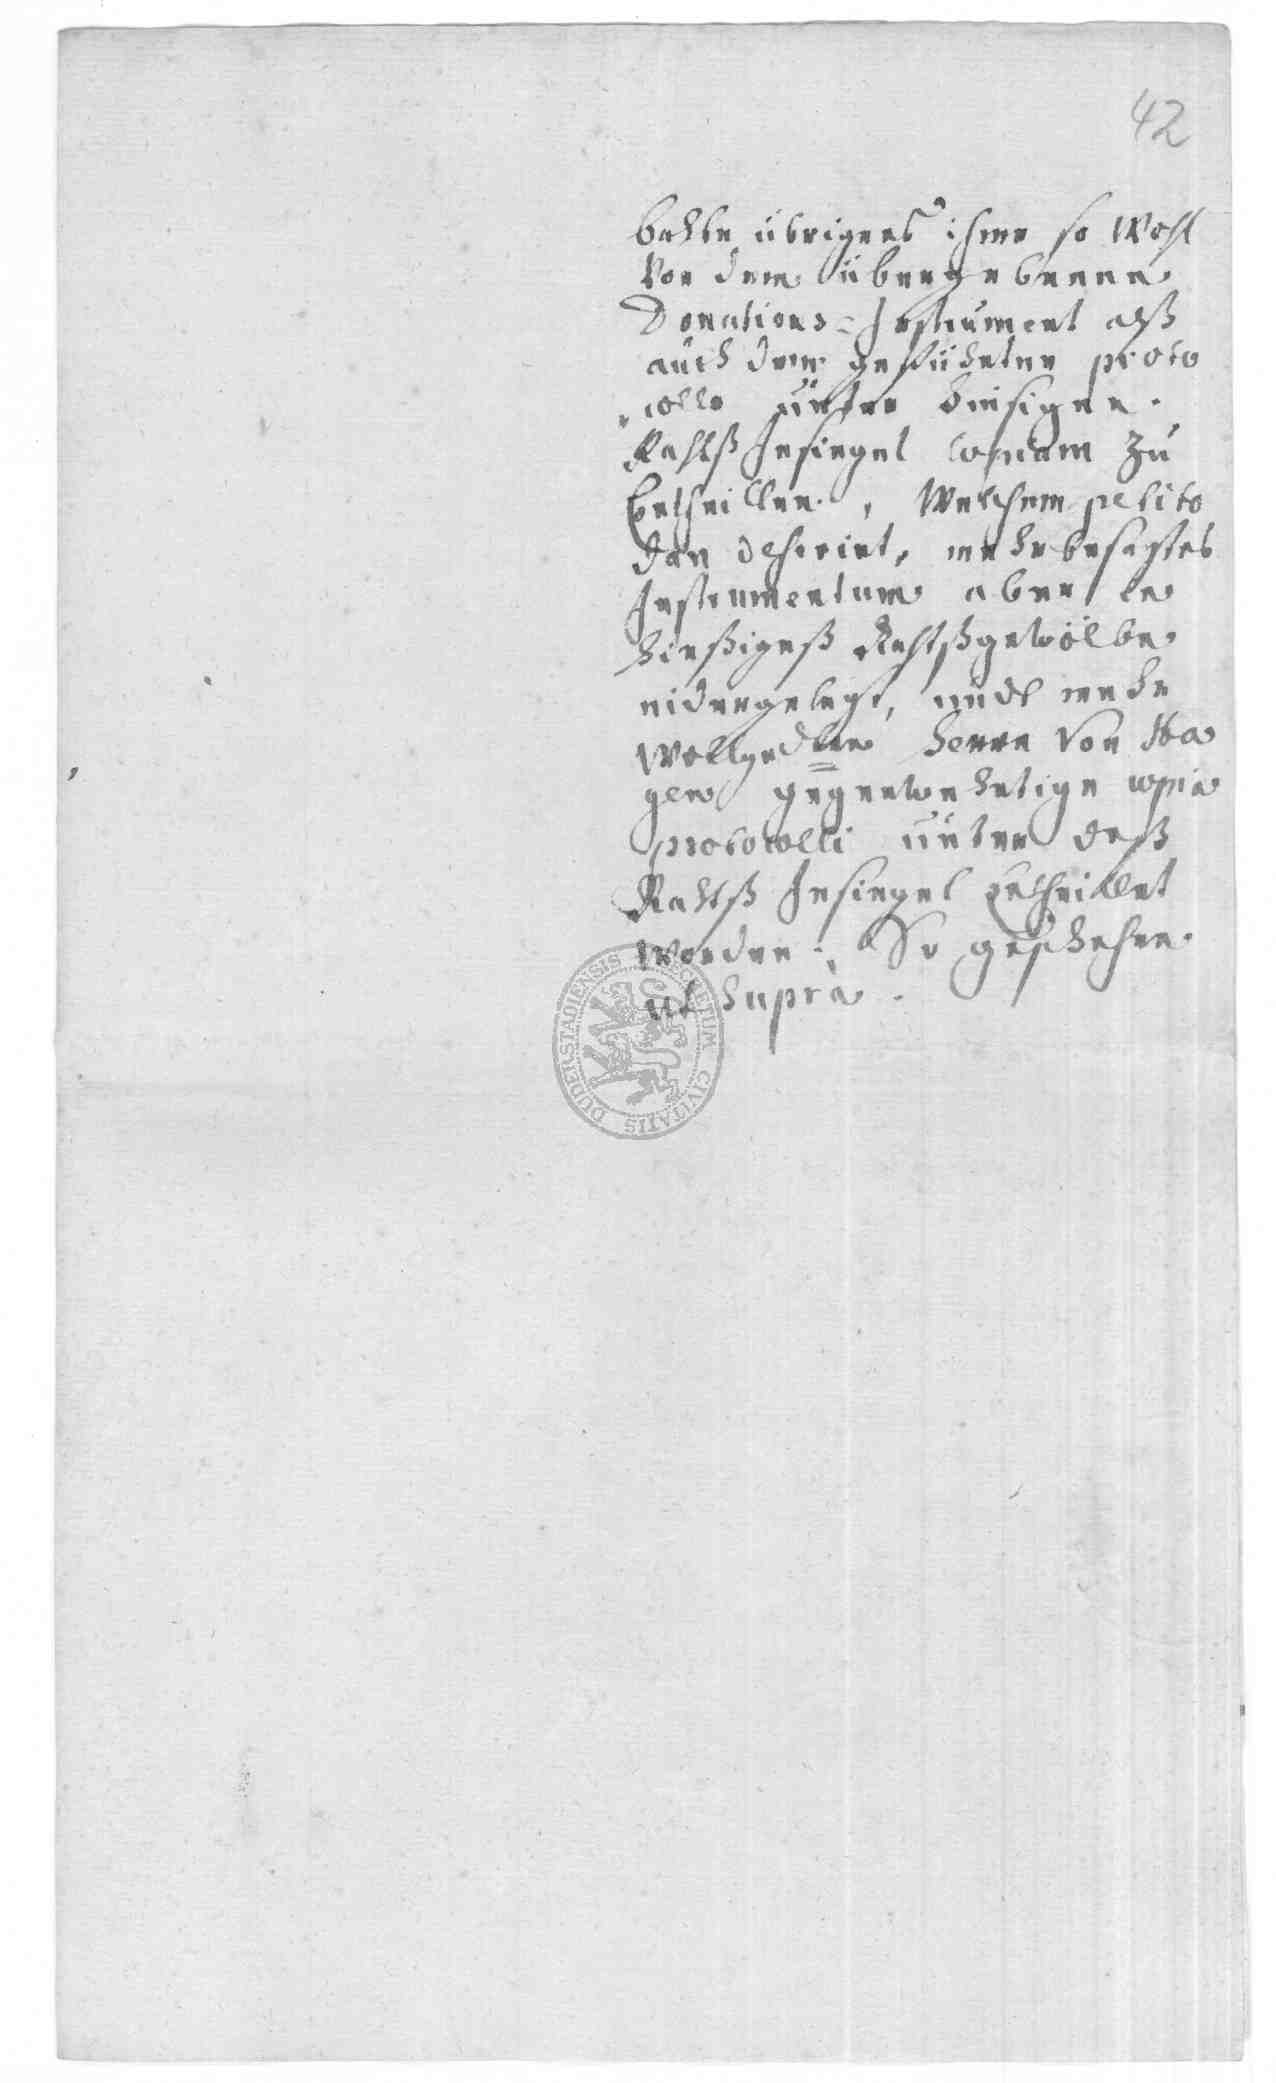 42
bahte übrigens ihme so wohl
vor dem übergebenen
Donations=Instrument alß
auch dem geführten proto
collo unter hiesigen
Rahtß Insiegel copiam zu
Ertheillen, welchem petito
dan deferirt, mehrbesagtes
Instrumentum aber in
hießigeß Rahtßgewölbe
nidergelegt, undt mehr
wollgedten herrn von Ha
gen gegenwehrtige copia
protocolli unter deß
Rahtß Insiegel ertheillet
worden. So geschehen
ut supra.
DUDERSTADIENSIS SECRETUM CIVITATIS